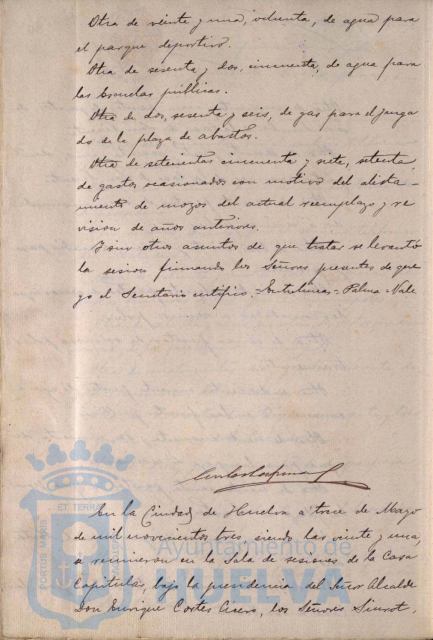 Otra de veinte y una, ochenta, de agua para
el parque deportivo.
Otra de sesenta y dos, cincuenta, de agua para
las Escuelas públicas.
Otra de dos, sesenta y seis, de gas para el juzga
do de la plaza de abastos.
Otra de setecientas cincuenta y siete, setenta
de gastos ocasionados con motivo del alista-
miento de mozos del actual reemplazo y re
vision de años anteriores.
Y sin otros asuntos de que tratar se levantó
la sesion firmando los Señores presentes de que
yo el Secretario certifico. = Entrelineas = Palma = Vale
En la Ciudad de Huelva a trece de Mayo
de mil novecientos tres, siendo las veinte y una,
se reunieron en la Sala de sesiones de la Casa
Capitular, bajo la presidencia del Señor Alcalde
Don Enrique Cortes, los Señores Siurot,
PORTUS MARIS
ET TERRAE
Ayuntamiento de
HUELVA